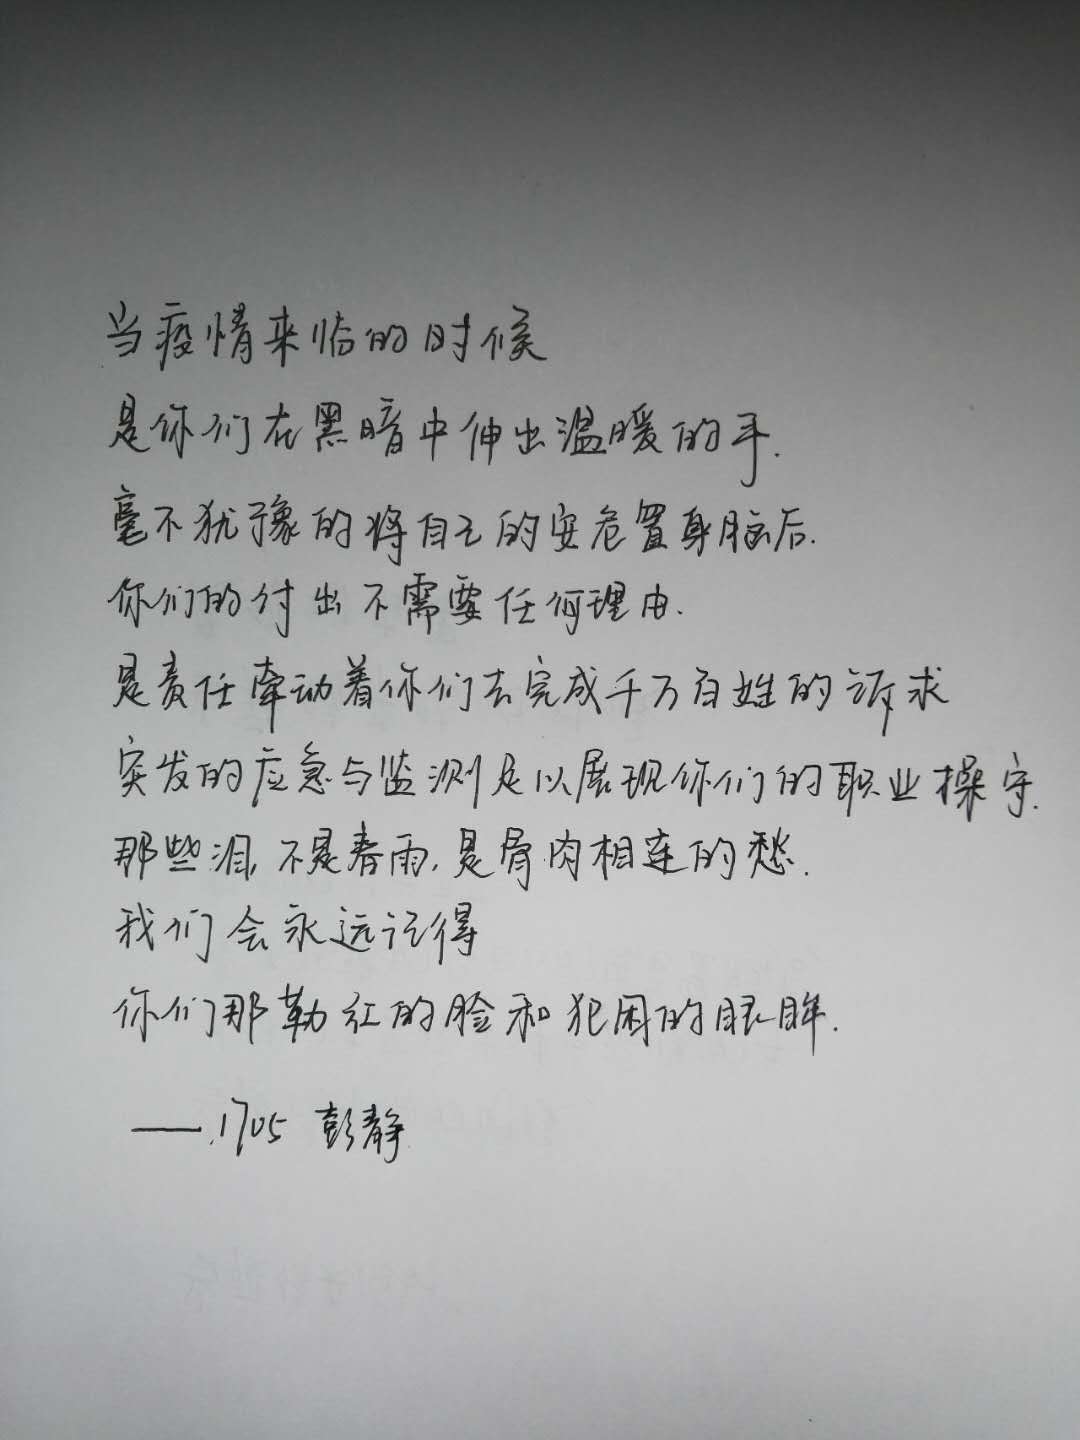 当疫情来临的时候
是你们在黑暗中伸出温暖的手.
毫不犹豫的将自己的安危置身脑后.
你们的付出不需要任何理由.
是责任牵动着你们去完成千万百姓的诉求
突发的应急与监测足以展现你们的职业操守.
那些泪,不是春雨,是骨肉相连的愁.
我们会永远记得
你们那勒红的脸和犯困的眼眸.
——.1705 彭静